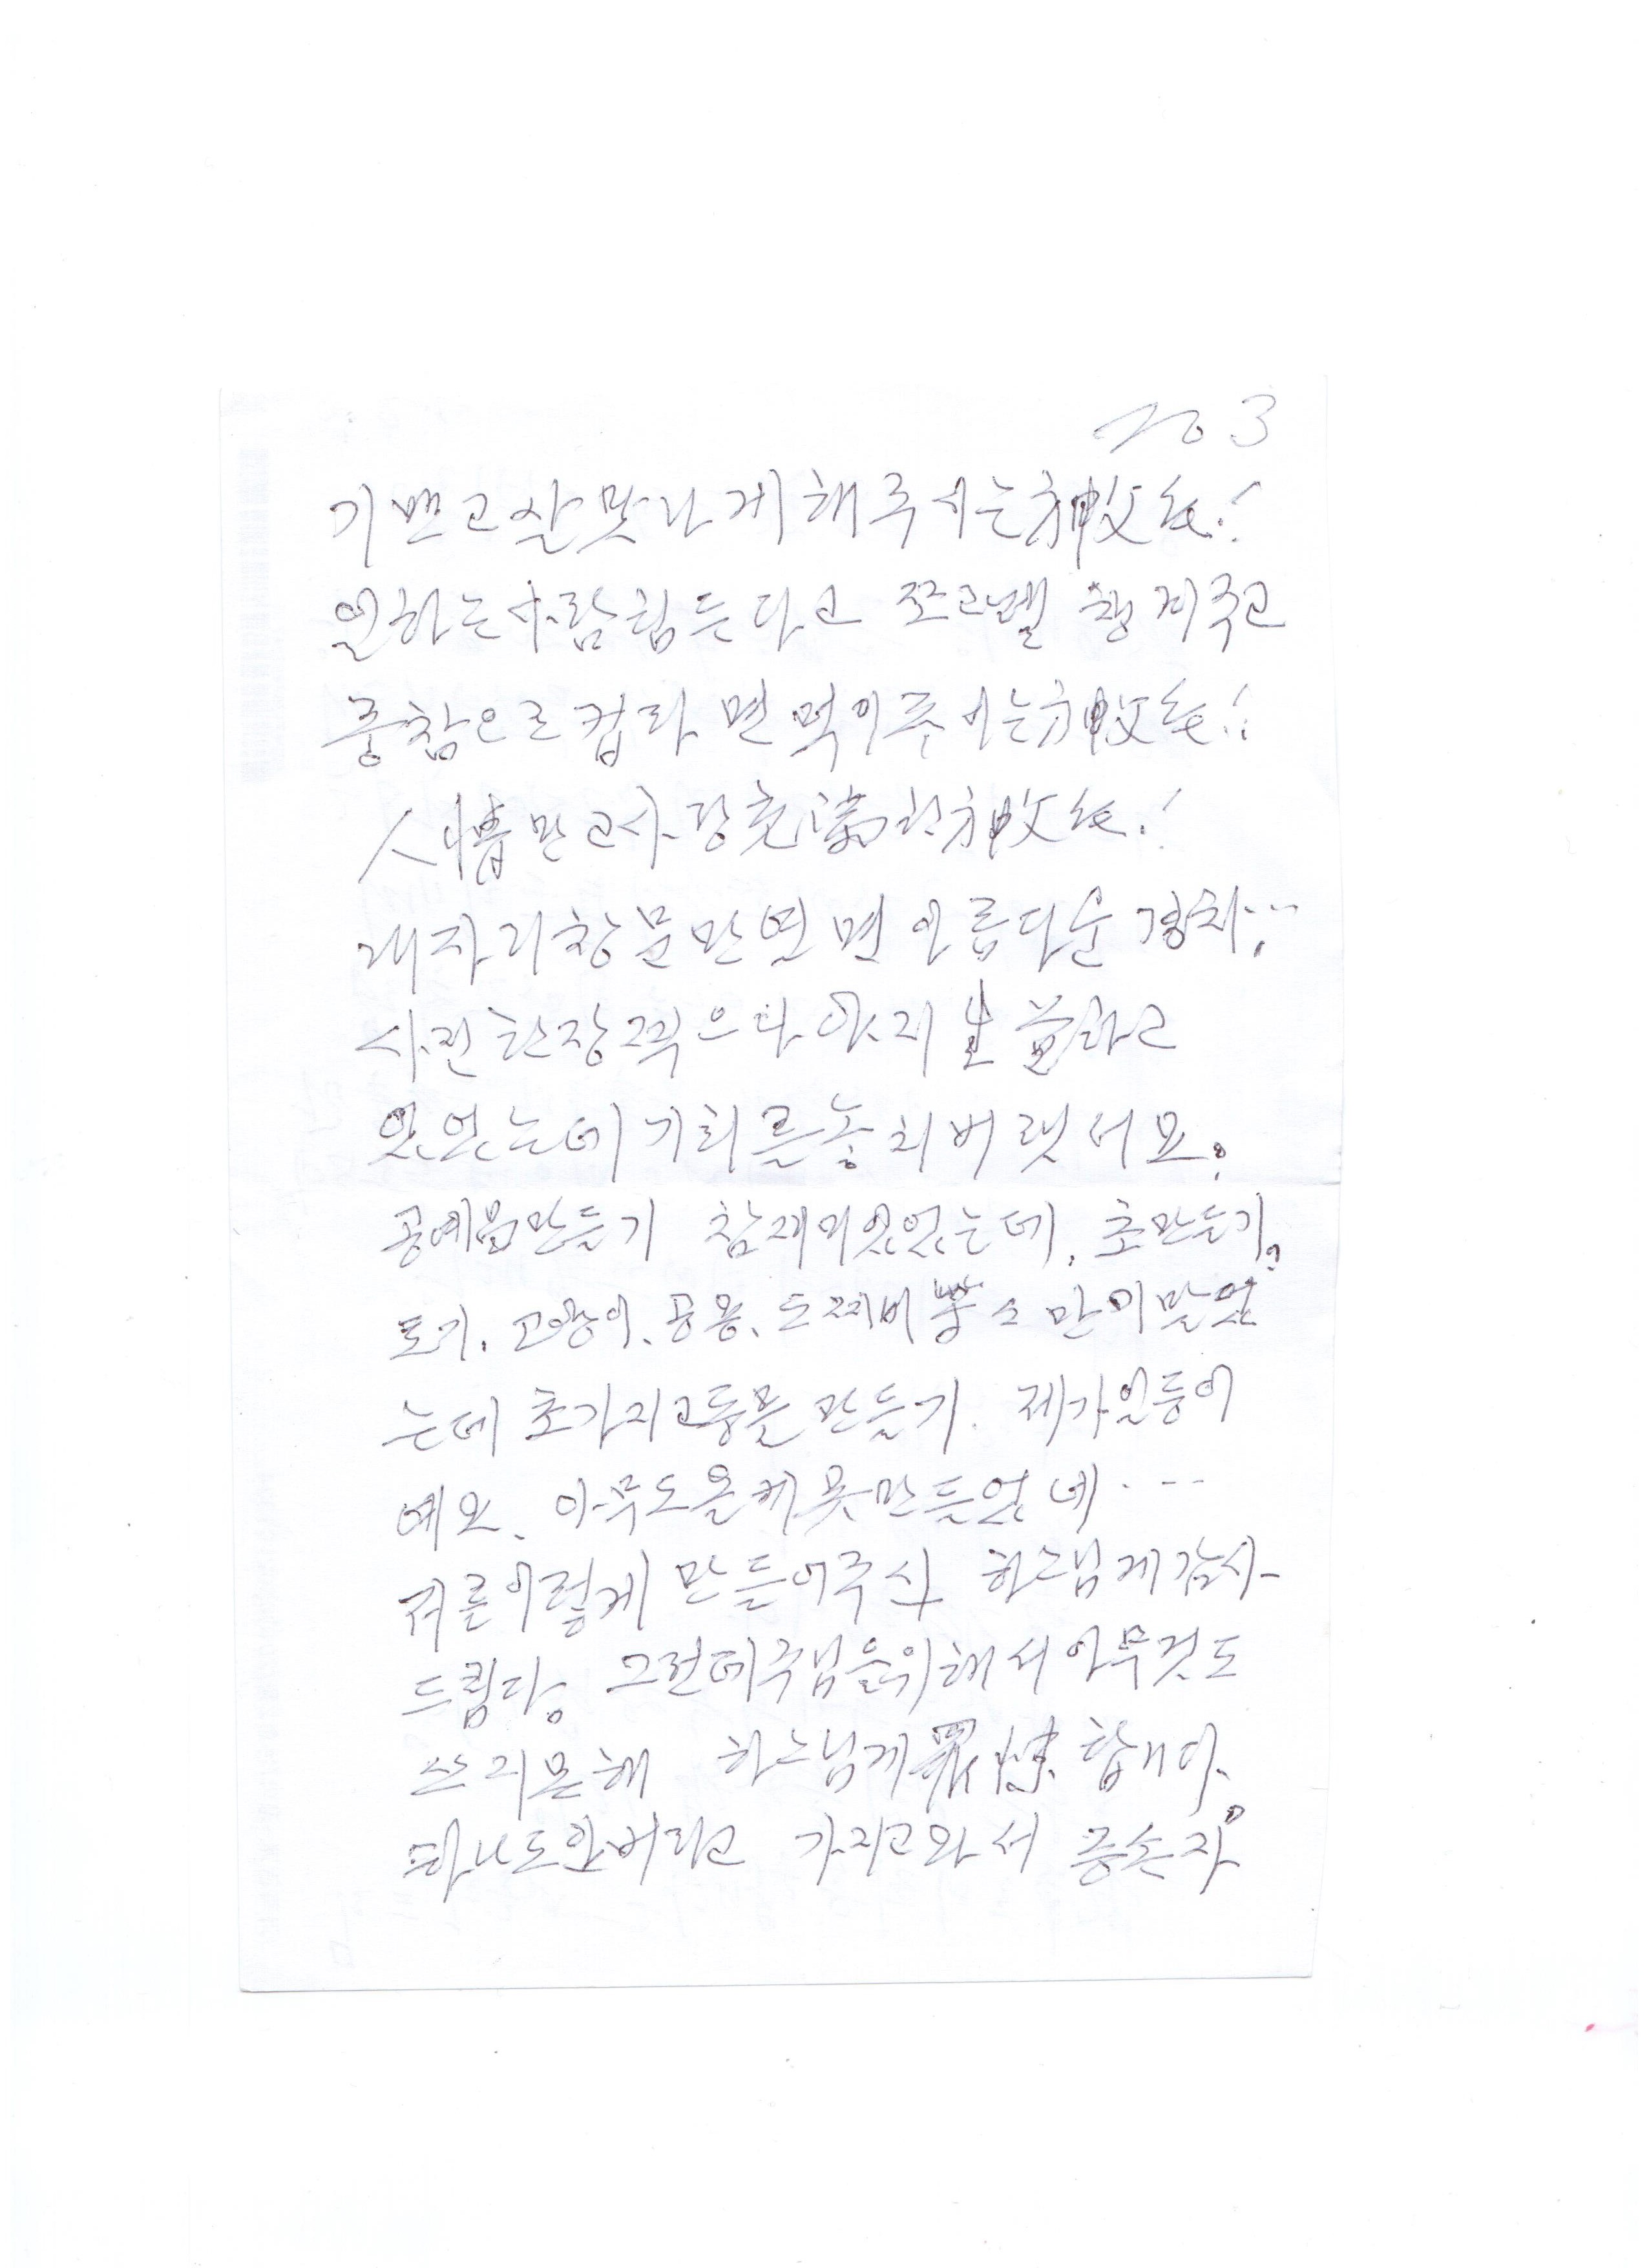 no 3
기쁘고 살맛나게 해주시는 神父님!
일하는 사람 힘든다고 쪼코렡 챙겨주고
중참으로 컵라면 먹이주시는 神父님!
人情 많고 사랑 充滿한 神父님!
내자리 창문만 열면 아름다운 경치...
사진 한장 찍으다야지
있었는데 기회를 놓치버렷서요.
공예품 만들기 참 재미있었는데, 초만들기,
토기. 고양이. 공룡. 도깨비 만이 말었
는데 초가지고 동물 만들기. 제가 일등이
예요. 아무도 올케 못만들었네...
저를 이렇게 만들어주신 하느님게 감사
드림다. 그런데 주님을 위해서 아무것도
쓰지 못해 하느님게 罪悚합니다.
하나도 안버리고 가지고와서 증손자